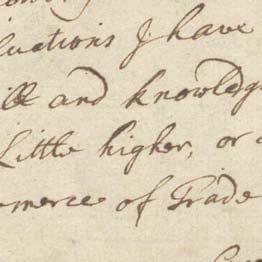 luations I have
ill and knowledg
Little higher, or a
merce of Trade